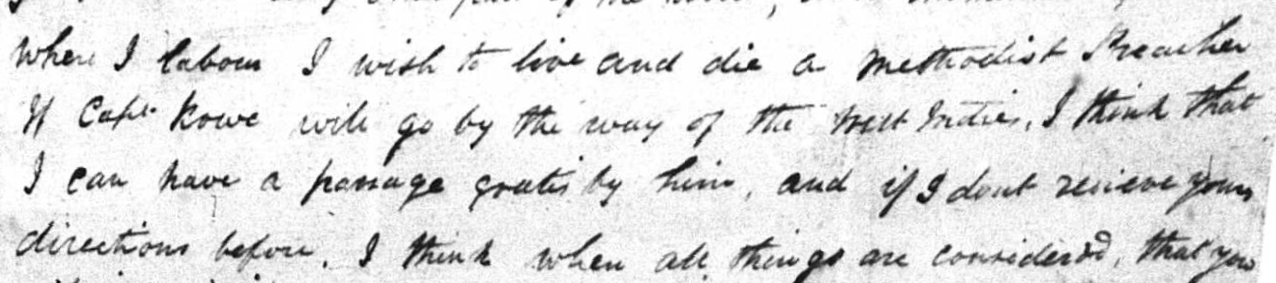 where I labour I wish to live and die a methodist Preacher
If Capt Rowe will go by the way of the West Indies, I think that
I can have a passage gratis by him, and if I dont recieve yours
directions before. I think when all things are considered, that you